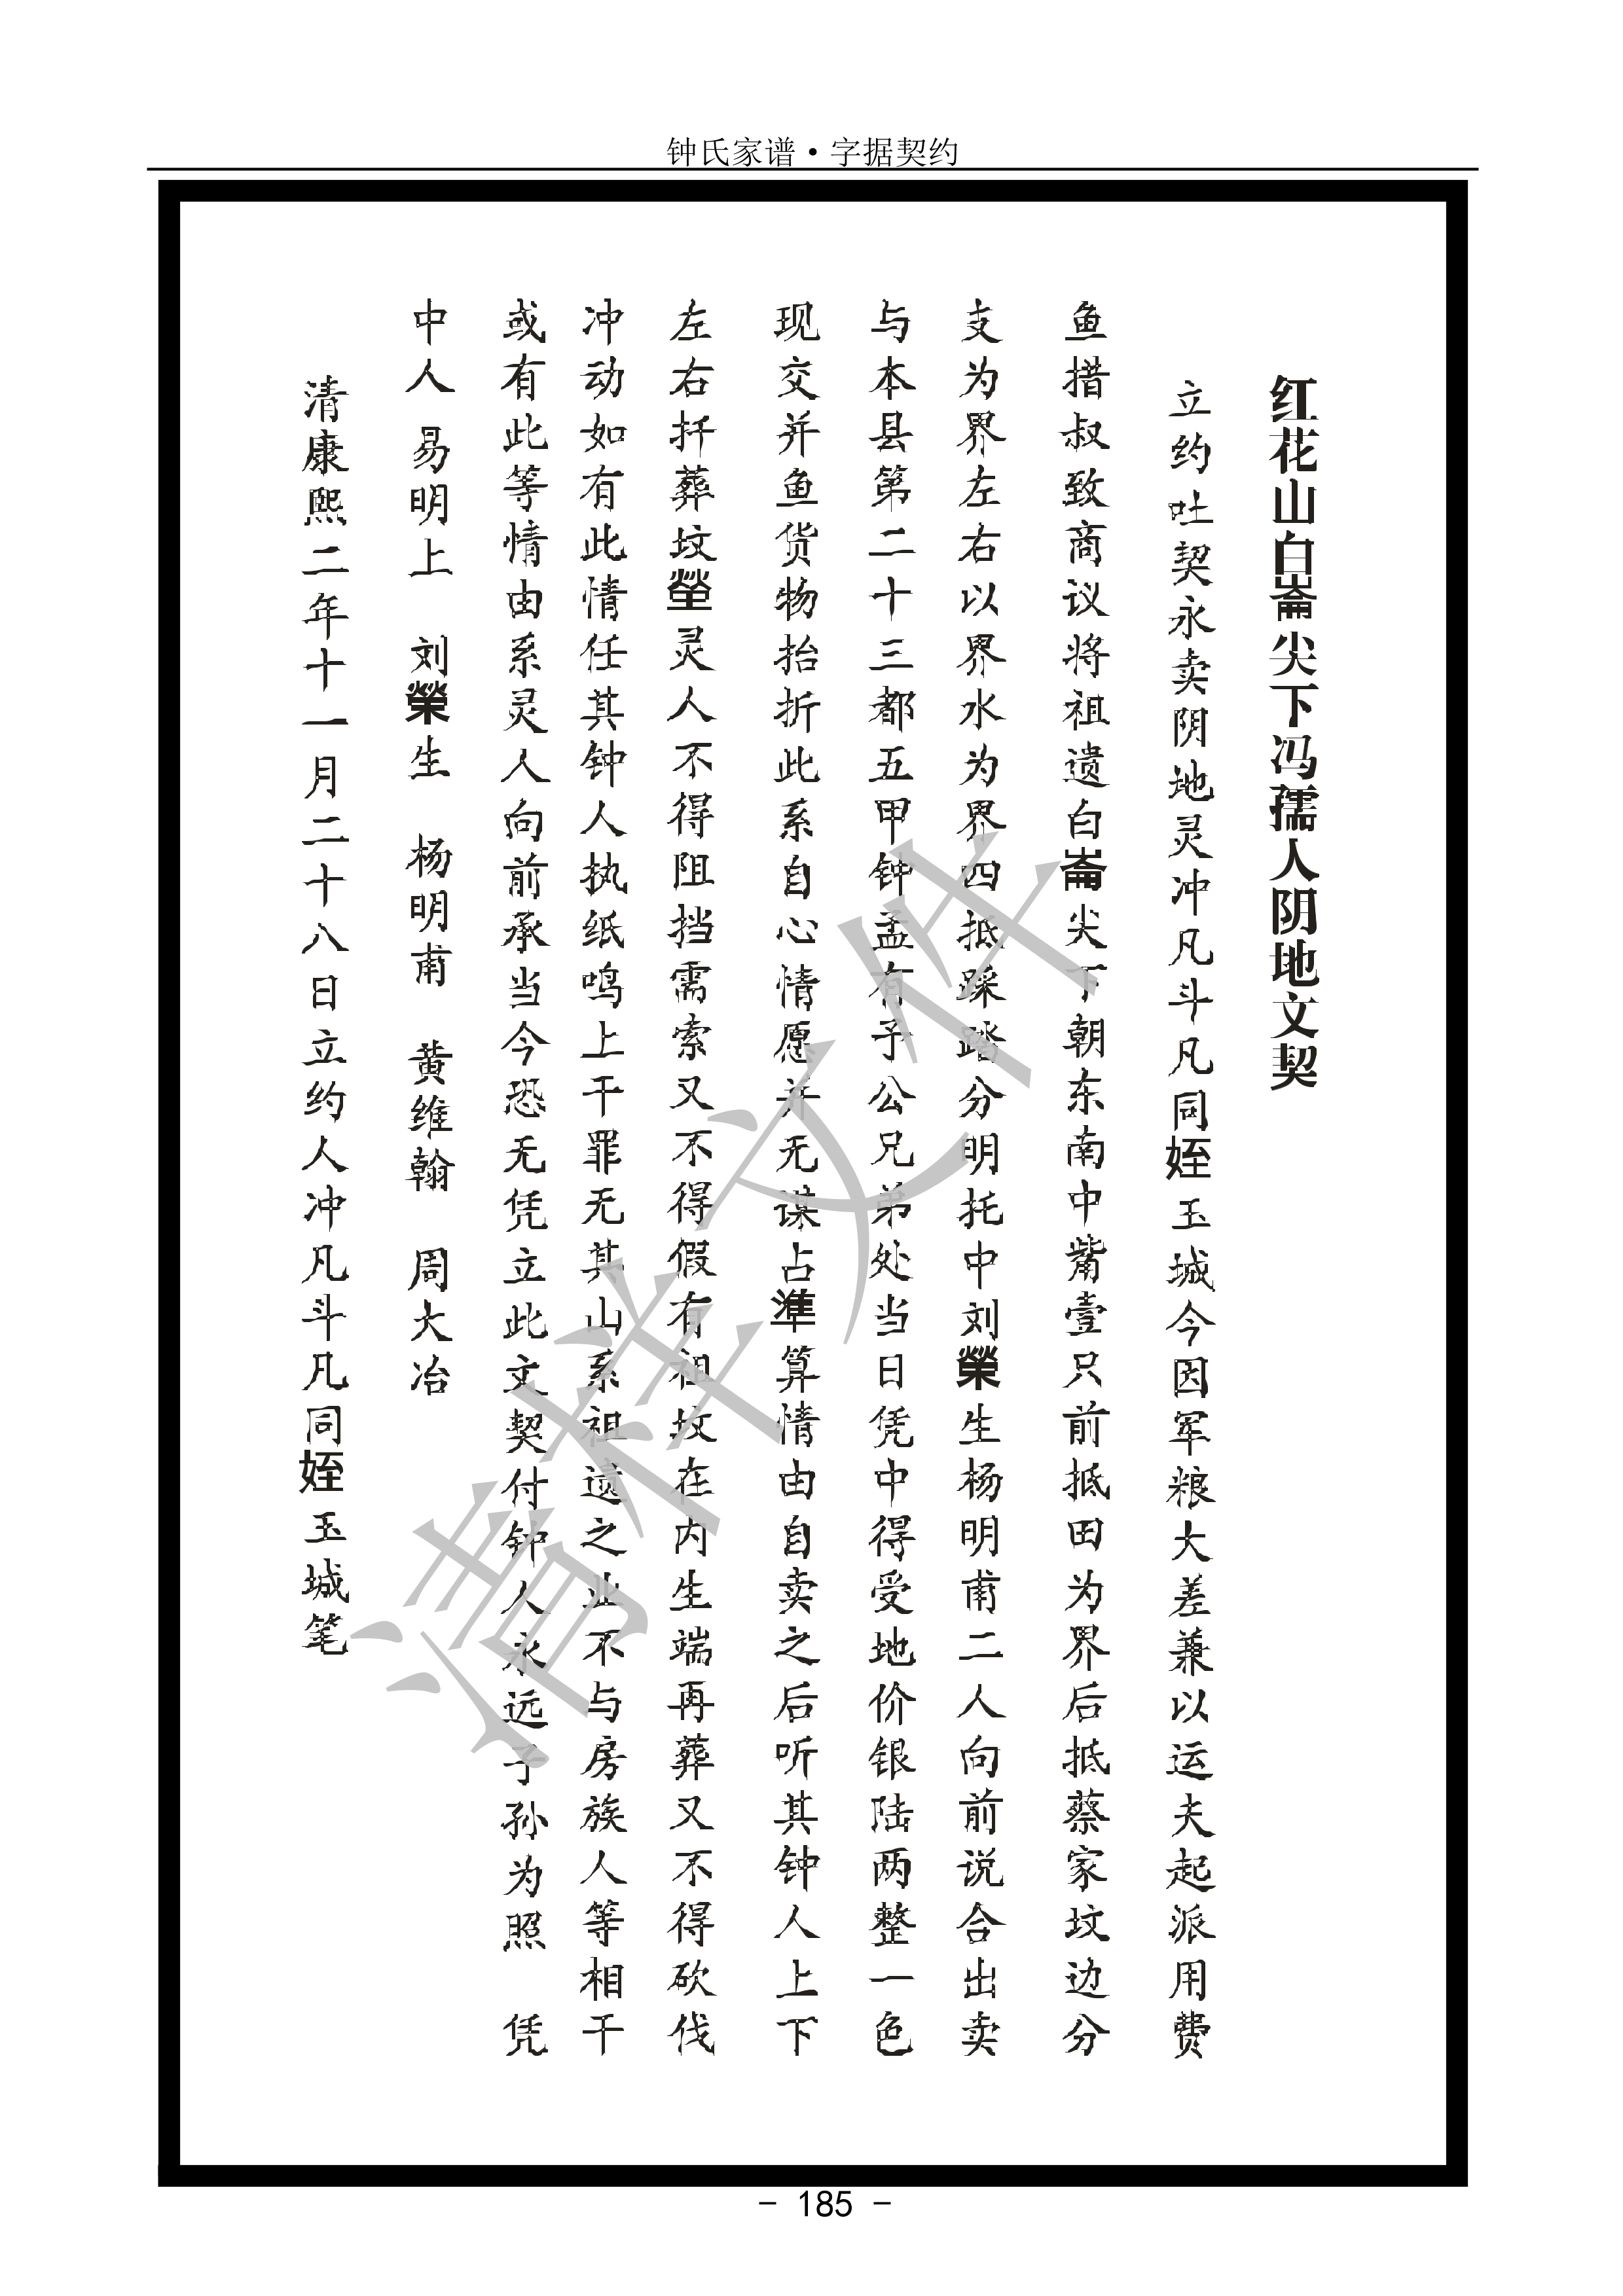 钟氏家谱·字据契约
红花山白崙尖下冯孺人阴地文契
立约吐契永卖阴地灵冲凡斗凡同姪玉城今因军粮大差兼以运夫起派用费
鱼措叔致商议将祖遗白崙尖下朝东南中觜壹只前抵田为界后抵蔡家坟边分
支为界左右以界水为界四抵踩踏分明托中刘榮生杨明甫二人向前说合出卖
与本县第二十三都五甲钟孟有子公兄弟处当日凭中得受地价银陆两整一色
现交并鱼货物抬折此系自心情愿并无谋占準算情由自卖之后听其钟人上下
左右扦葬坟塋灵人不得阻挡需索又不得假有祖坟在内生端再葬又不得砍伐
冲动如有此情任其钟人执纸鸣上干罪无其山系祖遗之业不与房族人等相干
或有此等情由系灵人向前承当今恐无凭立此文契付钟人永远子孙为照 凭
中人 易明上 刘榮生 杨明甫 黄维翰 周大冶
清康熙二年十一月二十八日立约人冲凡斗凡同姪玉城笔
清样文件
- 185 -